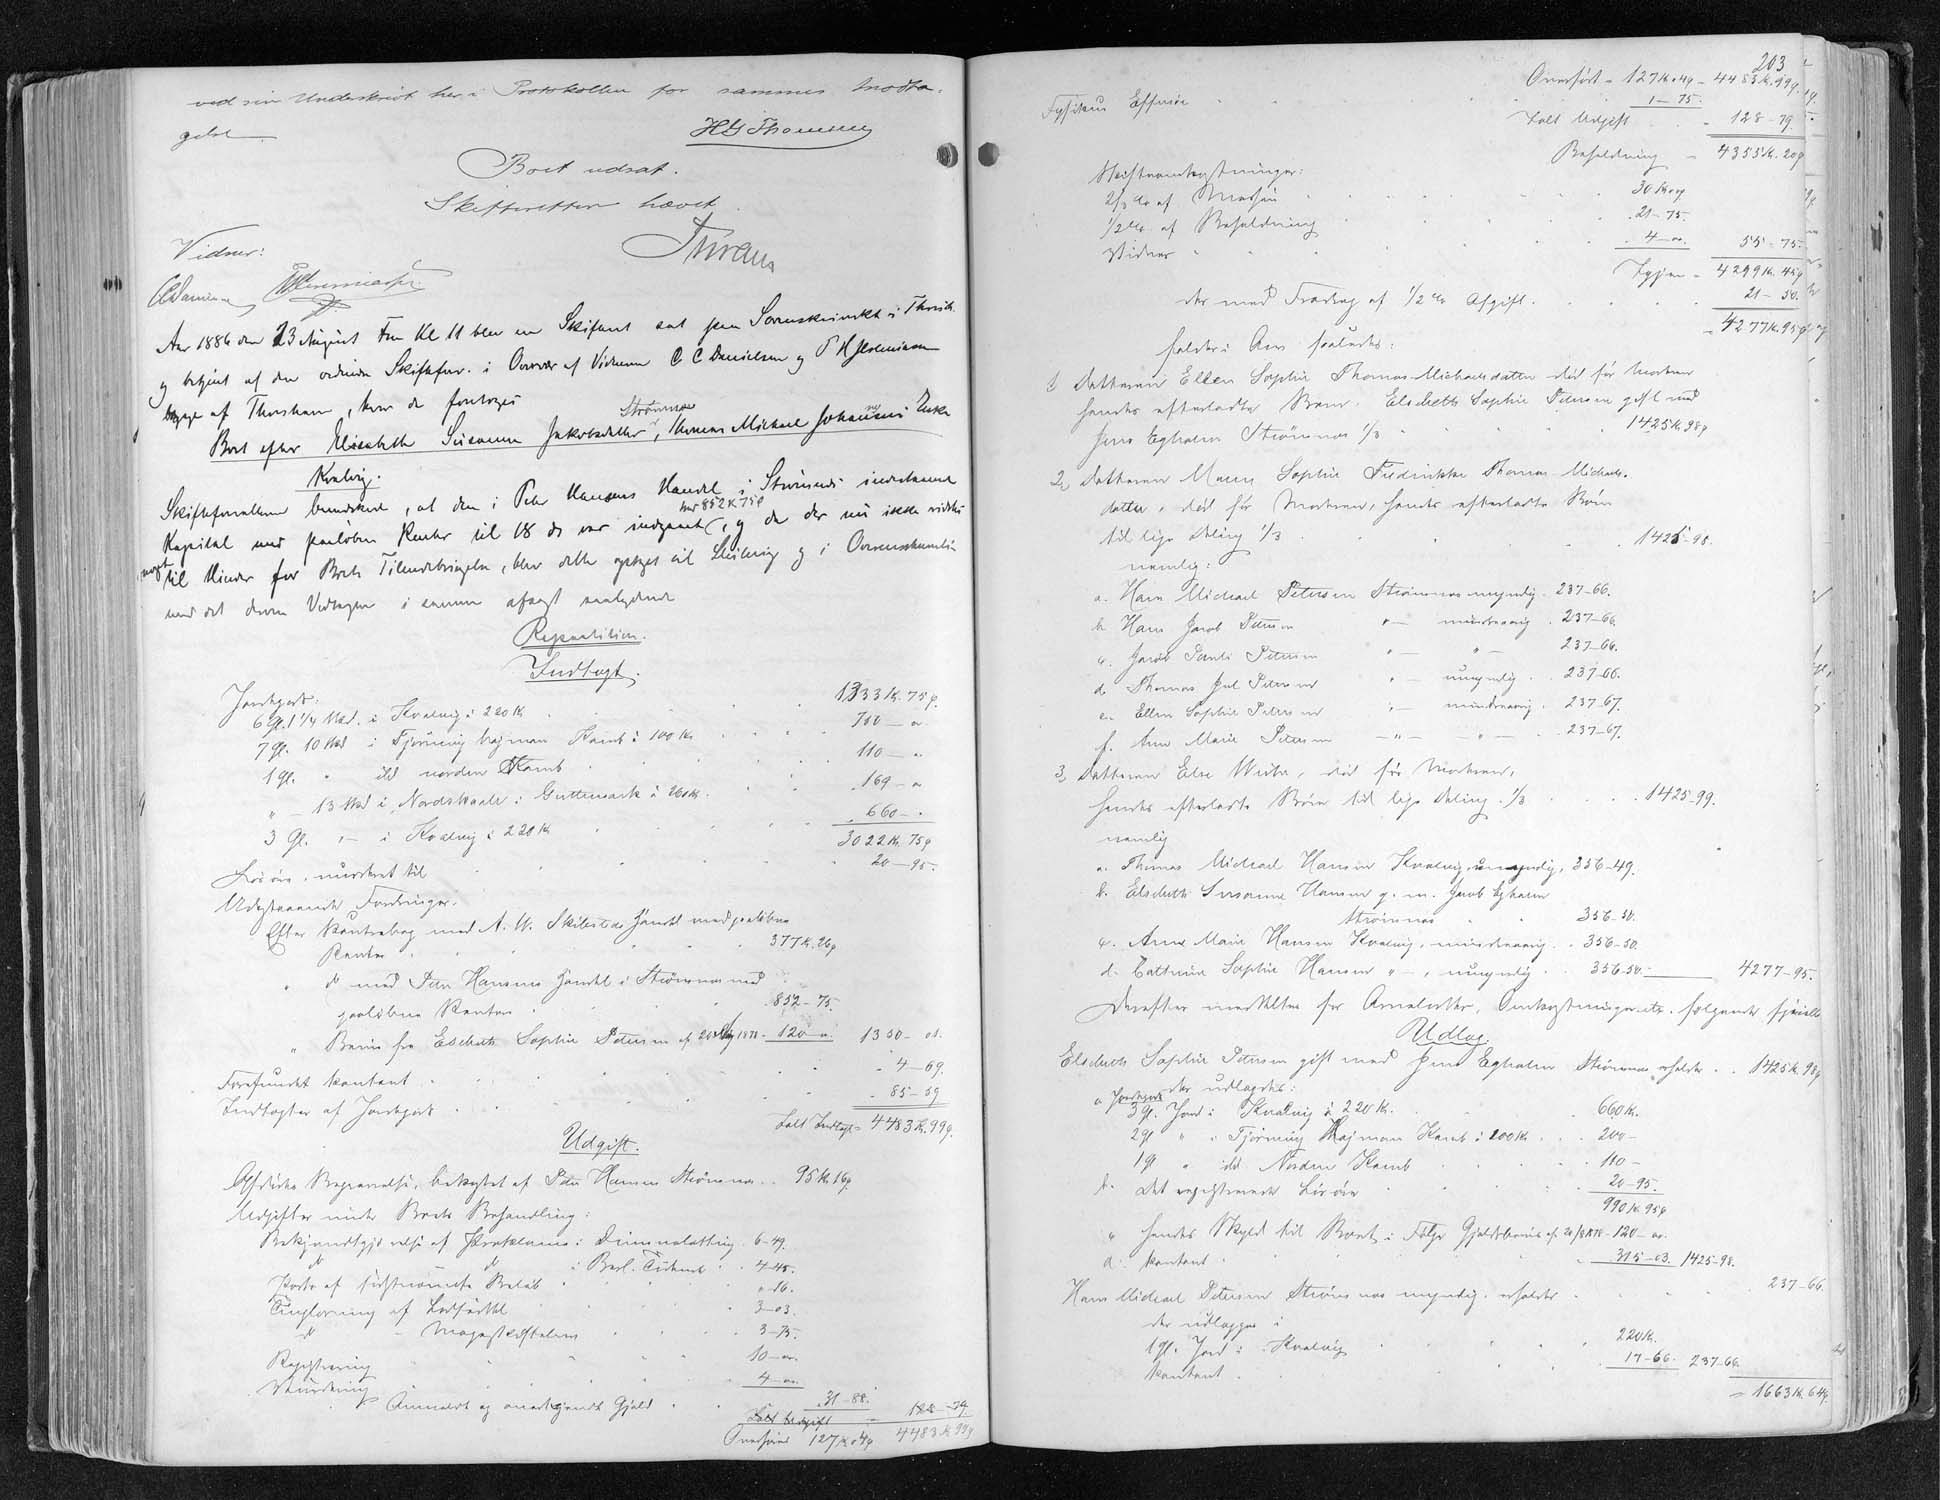 ved sin Underskrift her i Protokollen for sammes Modta-
gelse
H G Thomsen
Boet udsat.
Skifteretten hævet.
Vidner:
Aar 1886 den 23 August Fm Kl 11 blev en Skifteret sat paa Sorenskriverkt i Thorsh.
og betjent af den ordinære Skifteforv. i Overvær af Vidnerne C C Danielsen og P H Jeremiasen
begge af Thorshavn, hvor da foretoges
Boet efter Elisabeth Susanne Jakobsdatter, Thomas Michael Johannesens Enke
Strømnæs
Kvalvig.
Skifteforvalteren bemærkede, at den i Peter Hansens Handel i Strømnæs indestaaende
Kapital med paaløbne Renter til 18 ds var indgaaet, og da der nu ikke vidstes
med 852 K 75 ø
noget til Hinder for Boets Tilendebringelse, blev dette optaget til Slutning og i Overensstemmelse
med det derom Vedtagne i samme afsagt saalydende
Repartition.
Indtægt.
Jordegods:
6 Gl. 1 1/4 Skd. i Kvalvig à 220 K 1333 K. 75 ø.
7 Gl. 10 Skd i Tjørnuvig Kamb à 100 Kr 710 — "
1 Gl. " ibd norden Kamb 110 — "
" — 13 Skd i Nordskaale à 260 K. 169 — "
3 Gl. " — i Kvalvig à 220 K 660 — "
3022 K. 75 ø
Løsøre, vurderet til 20 — 95.
Udestaaende Fordringer:
Efter Kontrabog med A. W. Handel med paaløbne
Renter 377 K. 26 ø
" do med Peter Hansens Handel i Strømnæs med
paaløbne Renter 852 — 75.
" Bevis fra Elsebeth Sophie Petersen af 1878 120 — " 1350 — 01.
Forefundet kontant 4 — 69.
Indtægter af Jordegods 85 — 59
Ialt Indtægt = 4483 K. 99 ø.
Udgift.
Afdødes Begravelse, bekostet af Peter Hansen Strømnæs 95 K. 16 ø
Udgifter under Boets Behandling:
Bekjendtgjørelse af Proklama i Dimmalætting 6 — 49.
do do i Berl. Tidende 4 — 45.
Porto af sidstnævnte Beløb " — 16.
Tinglæsning af 3 — 03.
do — Mageskiftebrev 3 — 75.
Registrering 10 — 00.
Vurdering 4 — 00.
31 — 88.
Anmeldt og anerkjendt Gjæld
Ialt Udgift
Overføres 127 K. 04 ø 4483 K 99 ø
203
Overført = 127 K. 04 — 4483 K. 99 ø.
Fysikus Effersøe 1 — 75.
Ialt Udgift 128 — 79.
Beholdning = 4355 K. 20 ø
Skifteomkostninger:
2/3 % af Massen 30 K. "
1/2 % af Beholdning 21 — 75.
Vidner 4 — 00. 55 — 75.
Igjen = 4299 K. 45 ø
der med Fradrag af 1/2 % Afgift 21 — 50.
= 4277 K. 95 ø
falder i Arv saaledes:
1) Datteren Ellen Sophie Thomas Michaelsdatter død før Moderen
hendes efterladte Barn Elsebeth Sophie Petersen gift med
Jens Egholm Strømnæs 1/3 1425 K. 98 ø
2) Datteren Maren Sophie Fredrikke Thomas Michaels-
datter, død før Moderen, hendes efterladte Børn
til lige Deling 1/3 1425 — 98.
nemlig:
a. Hans Michael Petersen Strømnæs myndig 237 — 66.
b. Hans Jacob Petersen " — mindreaarig 237 — 66.
c. Jacob Pauli Petersen " — " — 237 — 66.
d. Thomas Juel Petersen " — umyndig 237 — 66.
e. Ellen Sophie Petersen " — mindreaarig 237 — 67.
f. Anne Marie Petersen — " — — " — 237 — 67.
3) Datteren Else Weibe, død før Moderen,
hendes efterladte Børn til lige Deling 1/3 1425 — 99.
nemlig
a. Thomas Michael Hansen Kvalvig, umyndig, 356 — 49.
b. Elsebeth Susanne Hansen g. m. Jacob Egholm
Strømnæs 356 — 50.
c. Anne Marie Hansen Kvalvig, mindreaarig 356 — 50.
d. Cathrine Sophie Hansen " — , umyndig 356 — 50. 4277 — 95.
Derefter meddeltes for Arvelodder, Omkostninger etc. følgende specielle
Udlæg.
Elsebeth Sophie Petersen gift med Jens Egholm Strømnæs erholder 1425 K. 98 ø
der udlægges:
a Jordegods
3 Gl. Jord i Kvalvig à 220 K. 660 K.
2 Gl " i Tjørnuvig Kamb à 100 K 200 —
1 Gl " ibd. Norden Kamb 110 —
b. det registrerede Løsøre 20 — 95.
990 K. 95 ø
" hendes Skyld til Boet i Følge Gjældsbevis af 1878 120 — 00.
d. kontant 315 — 03. 1425 — 98.
Hans Michael Petersen Strømnæs myndig, erholder 237 — 66.
der udlægges i
1 Gl. Jord i Kvalvig 220 K.
kontant 17 — 66. 237 — 66.
= 1663 K. 64 ø.